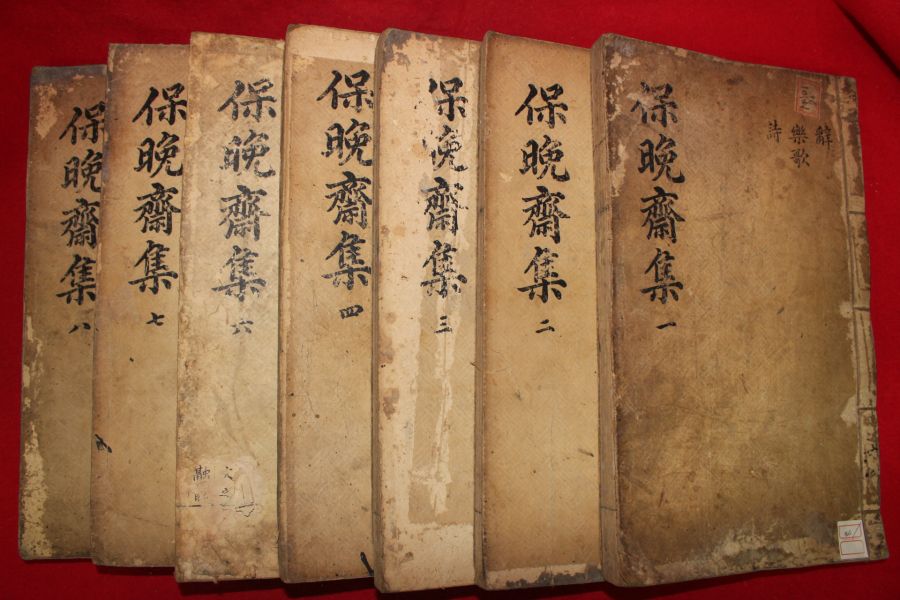 辭
樂歌
詩
保晚齋集 一
保晚齋集 二
保晚齋集 三
保晚齋集 四
保晚齋集 六
保晚齋集 七
保晚齋集 八